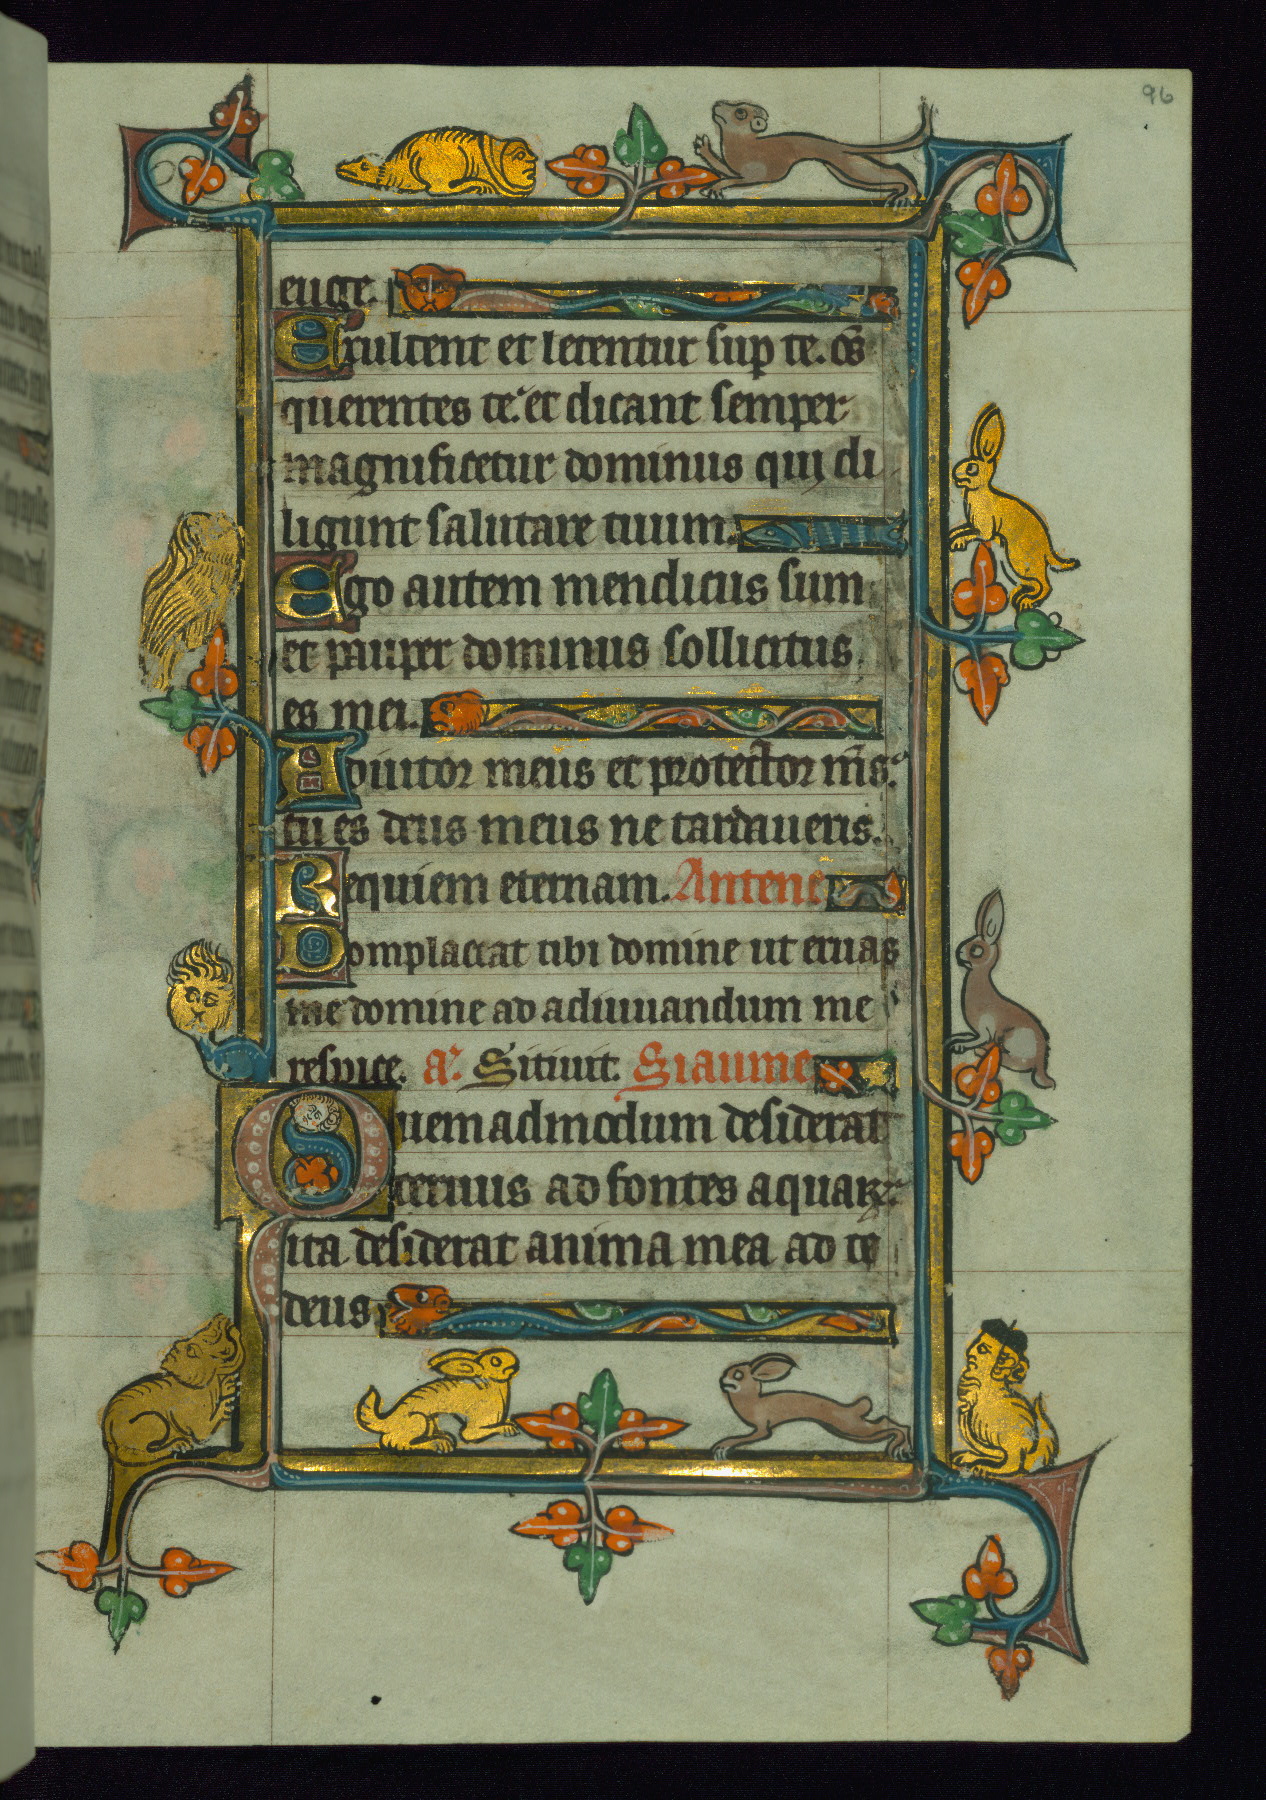 96
euge.
Exultent et letentur sup te. o̅s
querentes te. et dicant semper
magnificetur dominus qui di
ligunt salutare tuum.
Ego autem mendicus sum
et pauper dominus sollicitus
es mei.
Adiutor meus et protector m̅s.
tu es deus meus ne tardaueris.
Requiem eternam. Antene
Complaceat tibi domine ut eruas
me domine ad adiuuandum me
respice. a. Sitiuit. Siaume
Quemadmodum desiderat
ceruus ad fontes aquarꝝ
ita desiderat anima mea ad te
deus